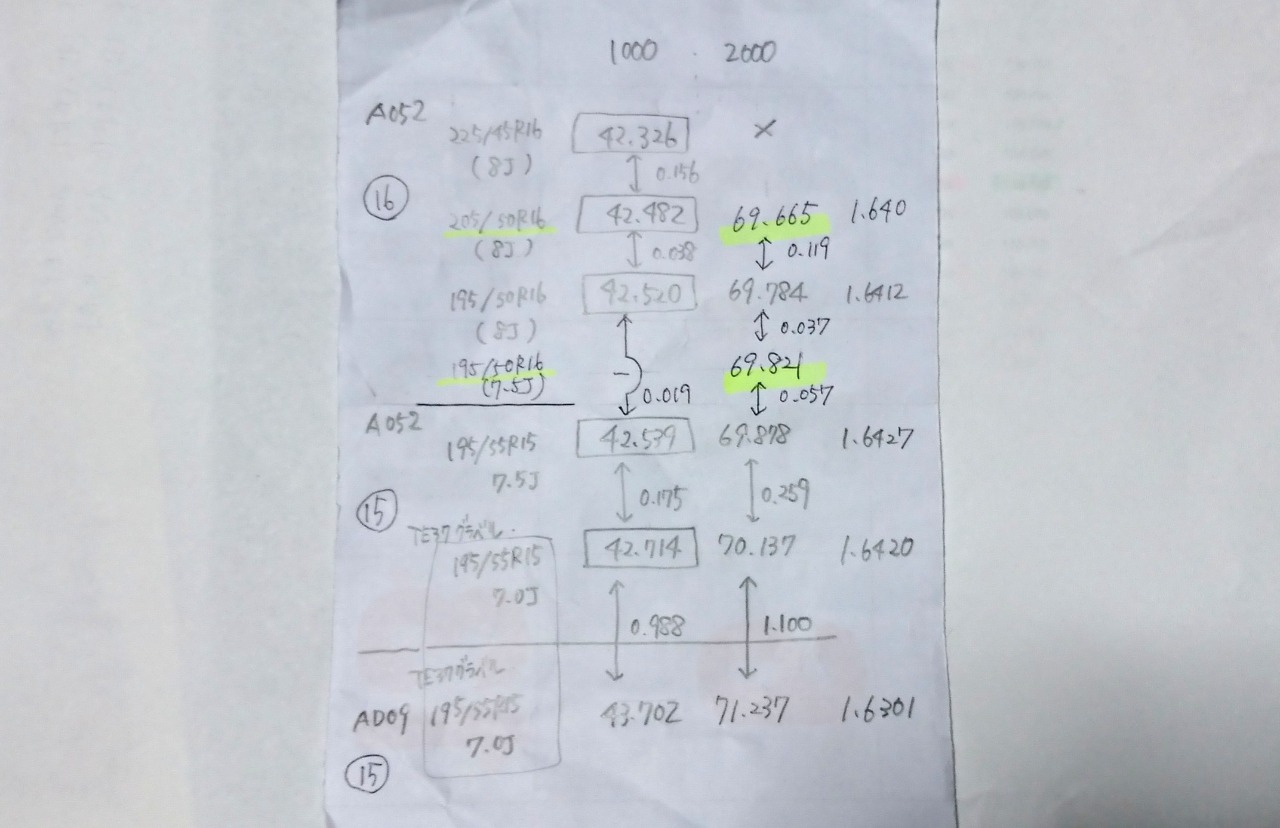 1000 . 2000
A052
225/45R16 42.326 ×
(8J) 0.156
16
205/50R16 42.482 69.665 1.640
(8J) 0.038 0.119
195/50R16 42.520 69.784 1.6412
(8J) 0.037
195/50R16 69.821
(7.5J) 0.019 0.057
A052
195/55R15 42.539 69.878 1.6427
7.5J 0.175 0.259
15
TE37グラベル
195/55R15 42.714 70.137 1.6420
7.0J
0.988 1.100
TE37グラベル
AD09 195/55R15 43.702 71.237 1.6301
7.0J
15